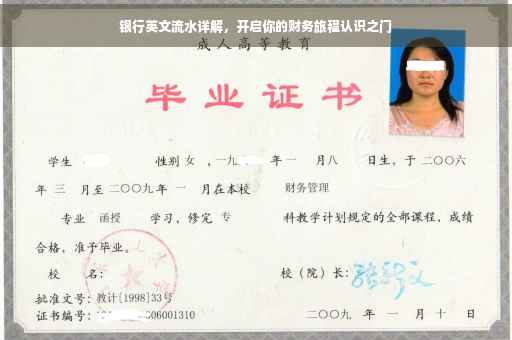 银行英文流水详解，开启你的财务旅程认识之门
成人高等教育
毕业证书
学生 性别 女 ，一九 年 一 月 八 日生，于 二〇〇六
年 三 月至 二〇〇九 年 一 月在本校 财务管理
专业 函授 学习，修完 专 科教学计划规定的全部课程，成绩
合格，准予毕业。
校 名： 校（院）长：
批准文号：教计[1998]33号
证书编号： 06001310 二〇〇九 年 一 月 十 日